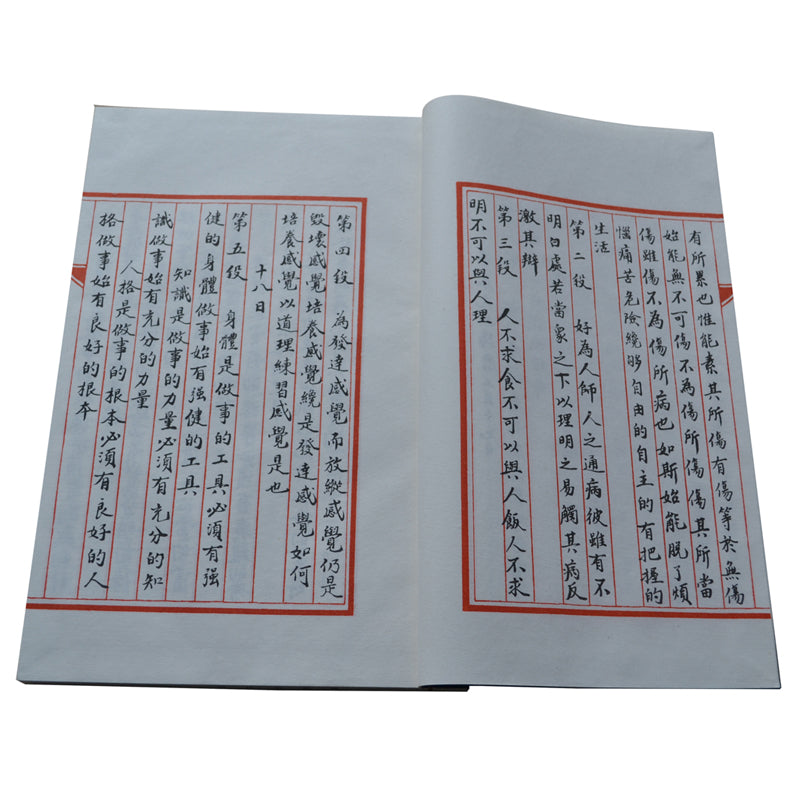 有所累也惟能素其所傷有傷等於無傷
始能無不可傷不為傷所傷傷其所當
傷雖傷不為傷所病也如斯始能脫了煩
惱痛苦危險纔够自由的自主的有把握的
生活
第二段 好為人師人之通病彼雖有不
明白處若當象之下以理明之易觸其病反
激其辯
第三段 人不求食不可以與人飯人不求
明不可以與人理
第四段 為發達感覺而放縱感覺仍是
毀壞感覺培養感覺纔是發達感覺如何
培養感覺以道理練習感覺是也
十八日
第五段 身體是做事的工具必須有强
健的身體做事始有强健的工具
知識是做事的力量必須有充分的知
識做事始有充分的力量
人格是做事的根本必須有良好的人
格做事始有良好的根本